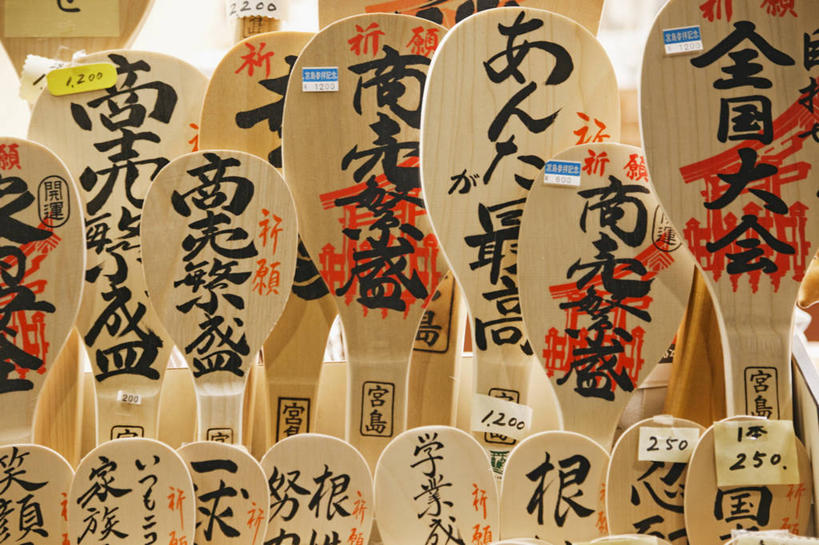 2200
宮島
1.200
商売繁盛
祈
祈願
宮島参拝記念
¥ 1200
商売繁盛
宮島
あんたが最高
祈
1.200
宮島参拝記念
¥ 1200
祈願
全国大会
宮島
願
開運
安全
商売繁盛
祈願
200
宮島
宮島参拝記念
¥ 600
祈願
商売繁盛
開運
笑顔
いつもニコニコ
家族
祈
一球
祈
根性
努力
祈願
学業成
祈願
根
祈
250
忍
1本
250.
国
祈